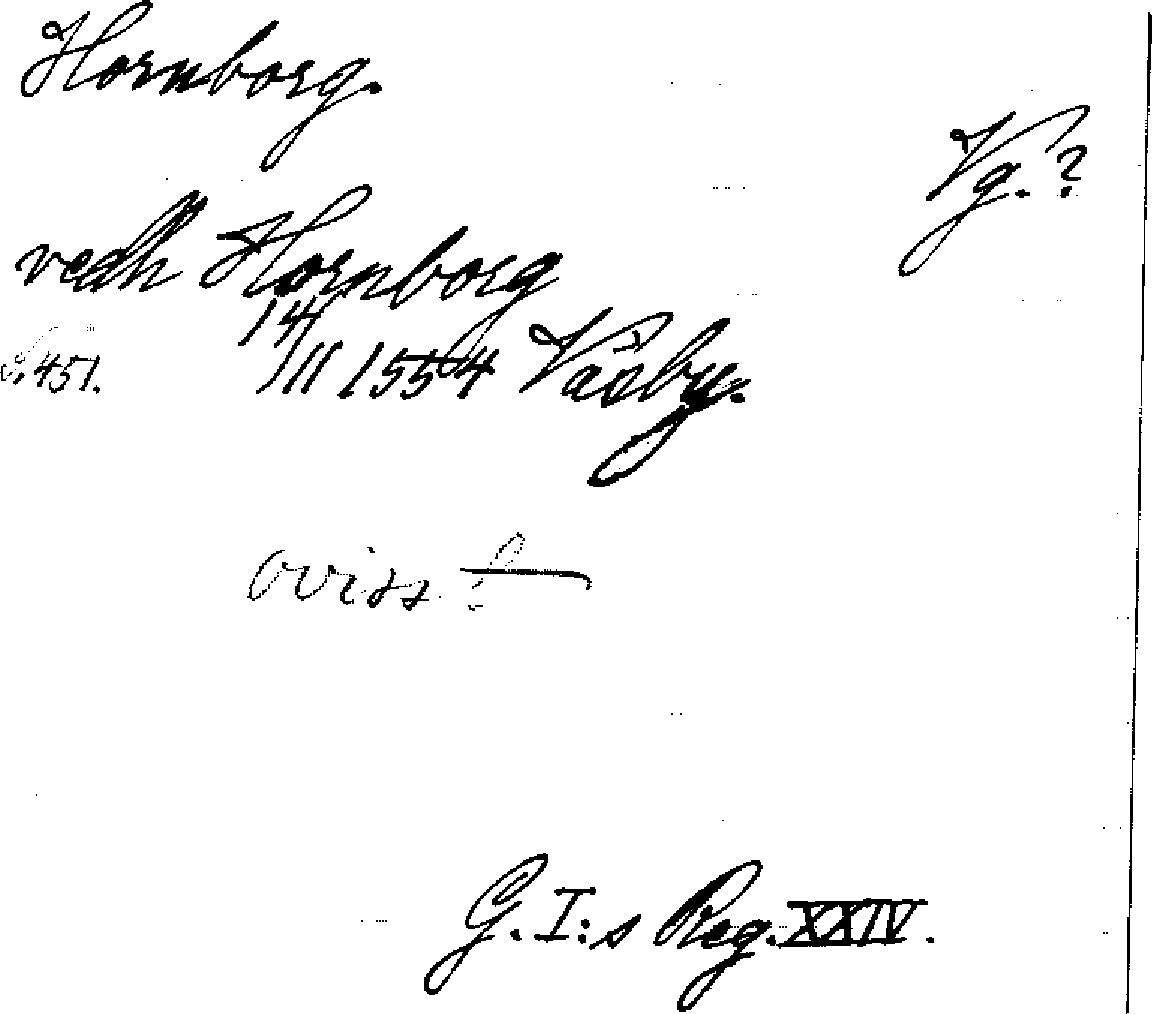 Hornborg.
Vg.?
vedh Hornborg
S. 451. 14/11 1554 Väsby.
oviss
G. I:s Reg. XXIV.